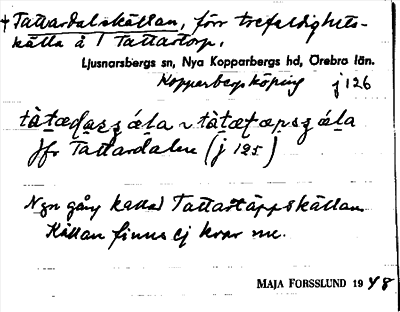 + Tattardalskällan, förr trefaldighets-
källa å 1 Tattartorp.
Ljusnarsbergs sn, Nya Kopparbergs hd, Örebro län.
Kopparbergs köping j 126
Jfr Tattardalen (j 125)
Ngn gång kallad Tattartäppskällan
Källan finns ej kvar nu.
MAJA FORSSLUND 1948